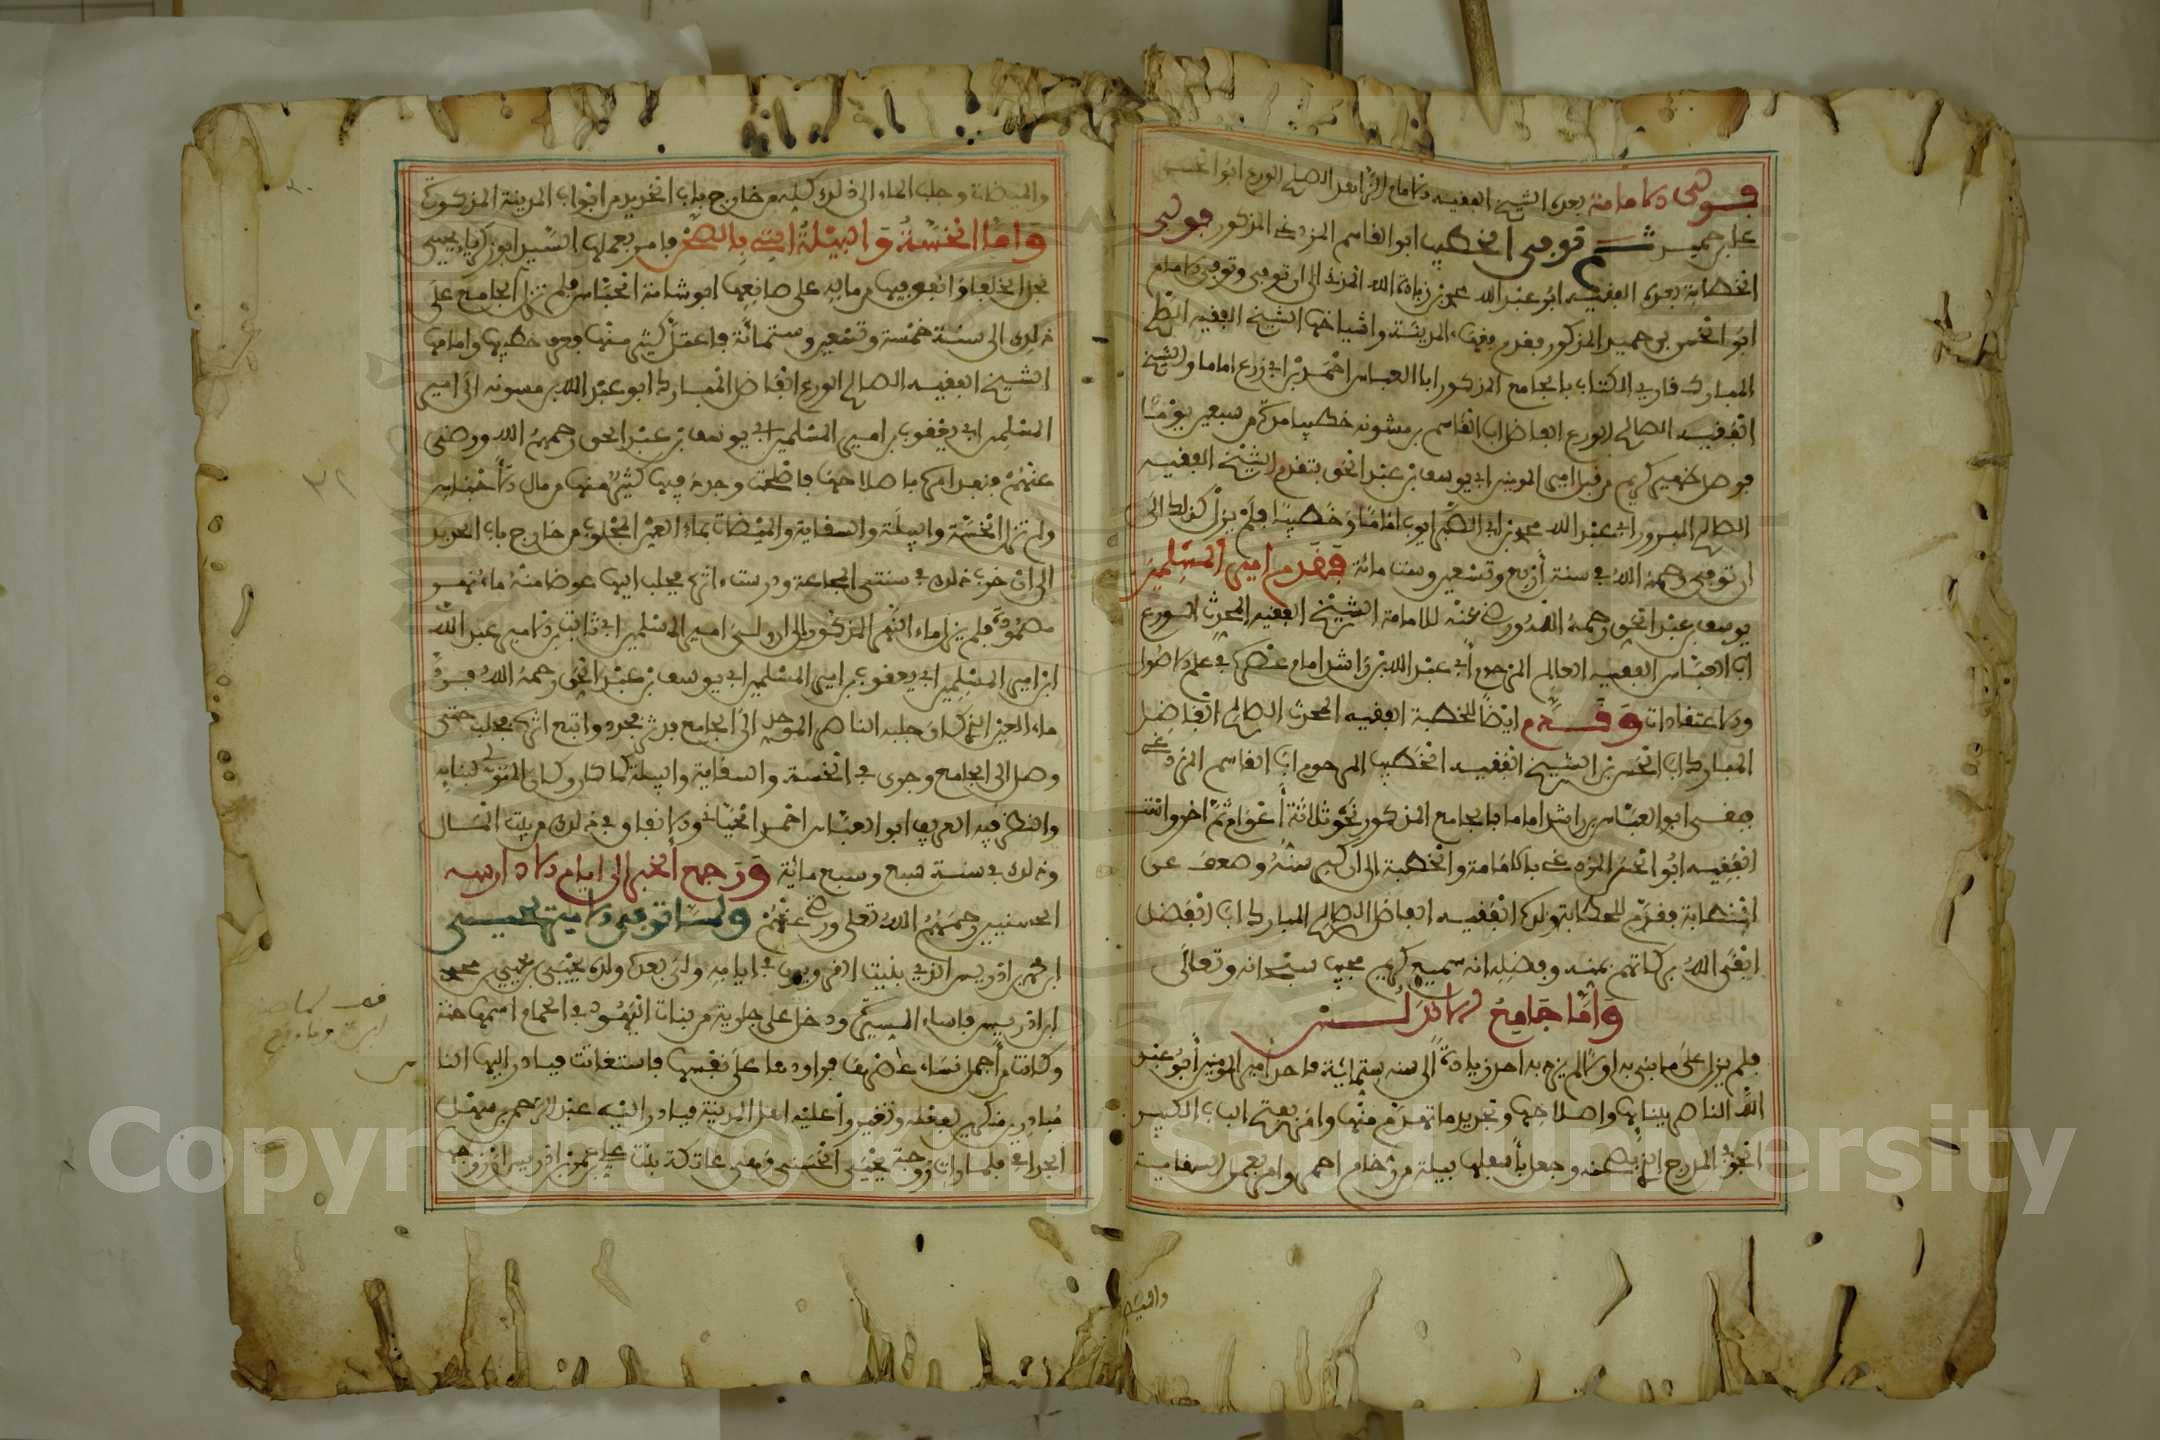 فولي الامامة بعده الشيخ الفقيه الامام الزاهد الصالح الورع ابو الحسن
علي بن حميد ثم توفي الخطيب ابو القاسم المزدغي المذكور فولي
الخطابة بعده الفقيه ابو عبد الله محمد بن زيادة الله المزني الى ان توفي وتوفي الامام
ابو الحسن بن حميد المذكور فقدم فقهاء المدينة واشياخها الشيخ الفقيه الصالح
المبارك قارئ الكتاب بالجامع المذكور ابا العباس احمد بن ابي زرع اماما والشيخ
الفقيه الصالح الورع الفاضل ابا القاسم بن مشونه خطيبا مدة من سبعين يوما
فوصل ظهير كريم من قبل امير المومنين ابي يوسف بن عبد الحق بتقدم الشيخ الفقيه
الصالح المبرور ابي عبد الله محمد بن ابي الصبر ايوب اماما وخطيبا فلم يزل كذلك الى
ان توفي رحمه الله في سنة أربع وتسعين وست مائة فقدم امير المسلمين
يوسف بن عبد الحق رحمه الله ورضي عنه للامامة الشيخ الفقيه المحدث الورع
ابا العباس الفقيه العالم المرحوم أبي عبد الله بن راشد امام عصره في علم الاصول
والاعتقادات وقدم ايضا للخطبة الفقيه المحدث الصالح الفاضل
المبارك ابا الحسن بن الشيخ الفقيه الخطيب المرحوم ابا القاسم المزدغي
فبقي ابو العباس بن راشد اماما بالجامع المذكور نحو ثلاثة أعوام ثم أخر وانتقل
الفقيه ابو الحسن المزدغي بالامامة والخطبة الى ان كبر سنه وضعف عن
الخطابة فقدم للخطابة ولده الفقيه الفاضل الصالح المبارك ابا الفضل
ابقى الله بركاتهم بمنه وفضله انه سميع كريم مجيب سبحانه وتعالى
وأما جامع الاندلس
فلم يزل على ما بني به اولا لم يزد به احد زيادة الى سنه ستمائة فاحد امير المومنين أبو عبد
الله الناصر ببنايها واصلاحها وتجديد ما تهدم منها وامر بعمل الباب الكبير
الجوفي المدرج الذي بصحنه وجعل بأسفلها بيلة من رخام احمر وامر بعمل السقاية
والميضات وجلب الماء الى ذلك كله من خارج باب الحديد من ابواب المدينة المذكورة
وأما الخسة والبيلة التي بالصحن فامر بعملها السيد ابو زكرياء يحيى
نجل الخلفاؤ انفق فيها من ماله على صانعها ابو شامة الجباس فلم تزل الجامع على
ذلك الى سنة خمسة وتسعين وستمائة فاعتل كثير منها فرفع خطيبها وامامها
الشيخ الفقيه الصالح الورع الفاضل المبارك ابو عبد الله بن مسونه الى امير
المسلمين ابي يعقوب بن امير المسلمين ابي يوسف بن عبد الحق رحمهم الله ورضي
عنهم فنفد امره باصلاحها فاصلحت وجدد فيها كثير منها من مال الأحباس
ولم تزل الخسة والبيلة والسقاية والميضات بماء العين المجلوب من خارج باب الحديد
الى ان خرب ذلك في سنتي المجاعة ودرست اثره فجلب اليها عوضا منه ماء نهر
مصمودة فلم يزل ماء النهر المذكور الى ان ولي امير المسلمين ابي ثابت بن الامير عبد الله
ابن امير المسلمين ابي يعقوب بن امير المسلمين ابي يوسف بن عبد الحق رحمه الله فرد
ماء العين الذي كان جلبه الناصر الموحد الى الجامع فدثر مجره واتبع اثره فجلب حتى
وصل الى الجامع وجرى في الخسة والسقاية والبيلة كما كان وكان المتولي لبنايه
والنظر فيه العريف ابو العباس احمد الجياني والانفاق في ذلك من بيت المال
وذلك في سنة سبع وسبع مائة ورجع الخبر الى ايام الادارسه
الحسنيين رحمهم الله تعلى ورضي عنهم ولما توفي الامير يحيى
ابن محمد بن ادريس الذي بنيت القرويين في ايامه ولي بعده ولده يحيى بن يحيى بن محمد
ابن ادريس فاساء السيرة ودخل على جارية من بنات اليهود في الحمام اسمها حنة
وكانت من أجمل نساء عصرها فراودها على نفسها فاستغاثت فبادر اليها النا
فبادرين منكرين لفعله وتغيروا عليه اهل المدينة فبادر اليه عبد الرحمن بن سهل
الجذامي فلما رات زوجة يحيى الحسني وهي عاتكة بنت علي بن عمر بن ادريس زوجها
واقبل
Copyright © King Saud University